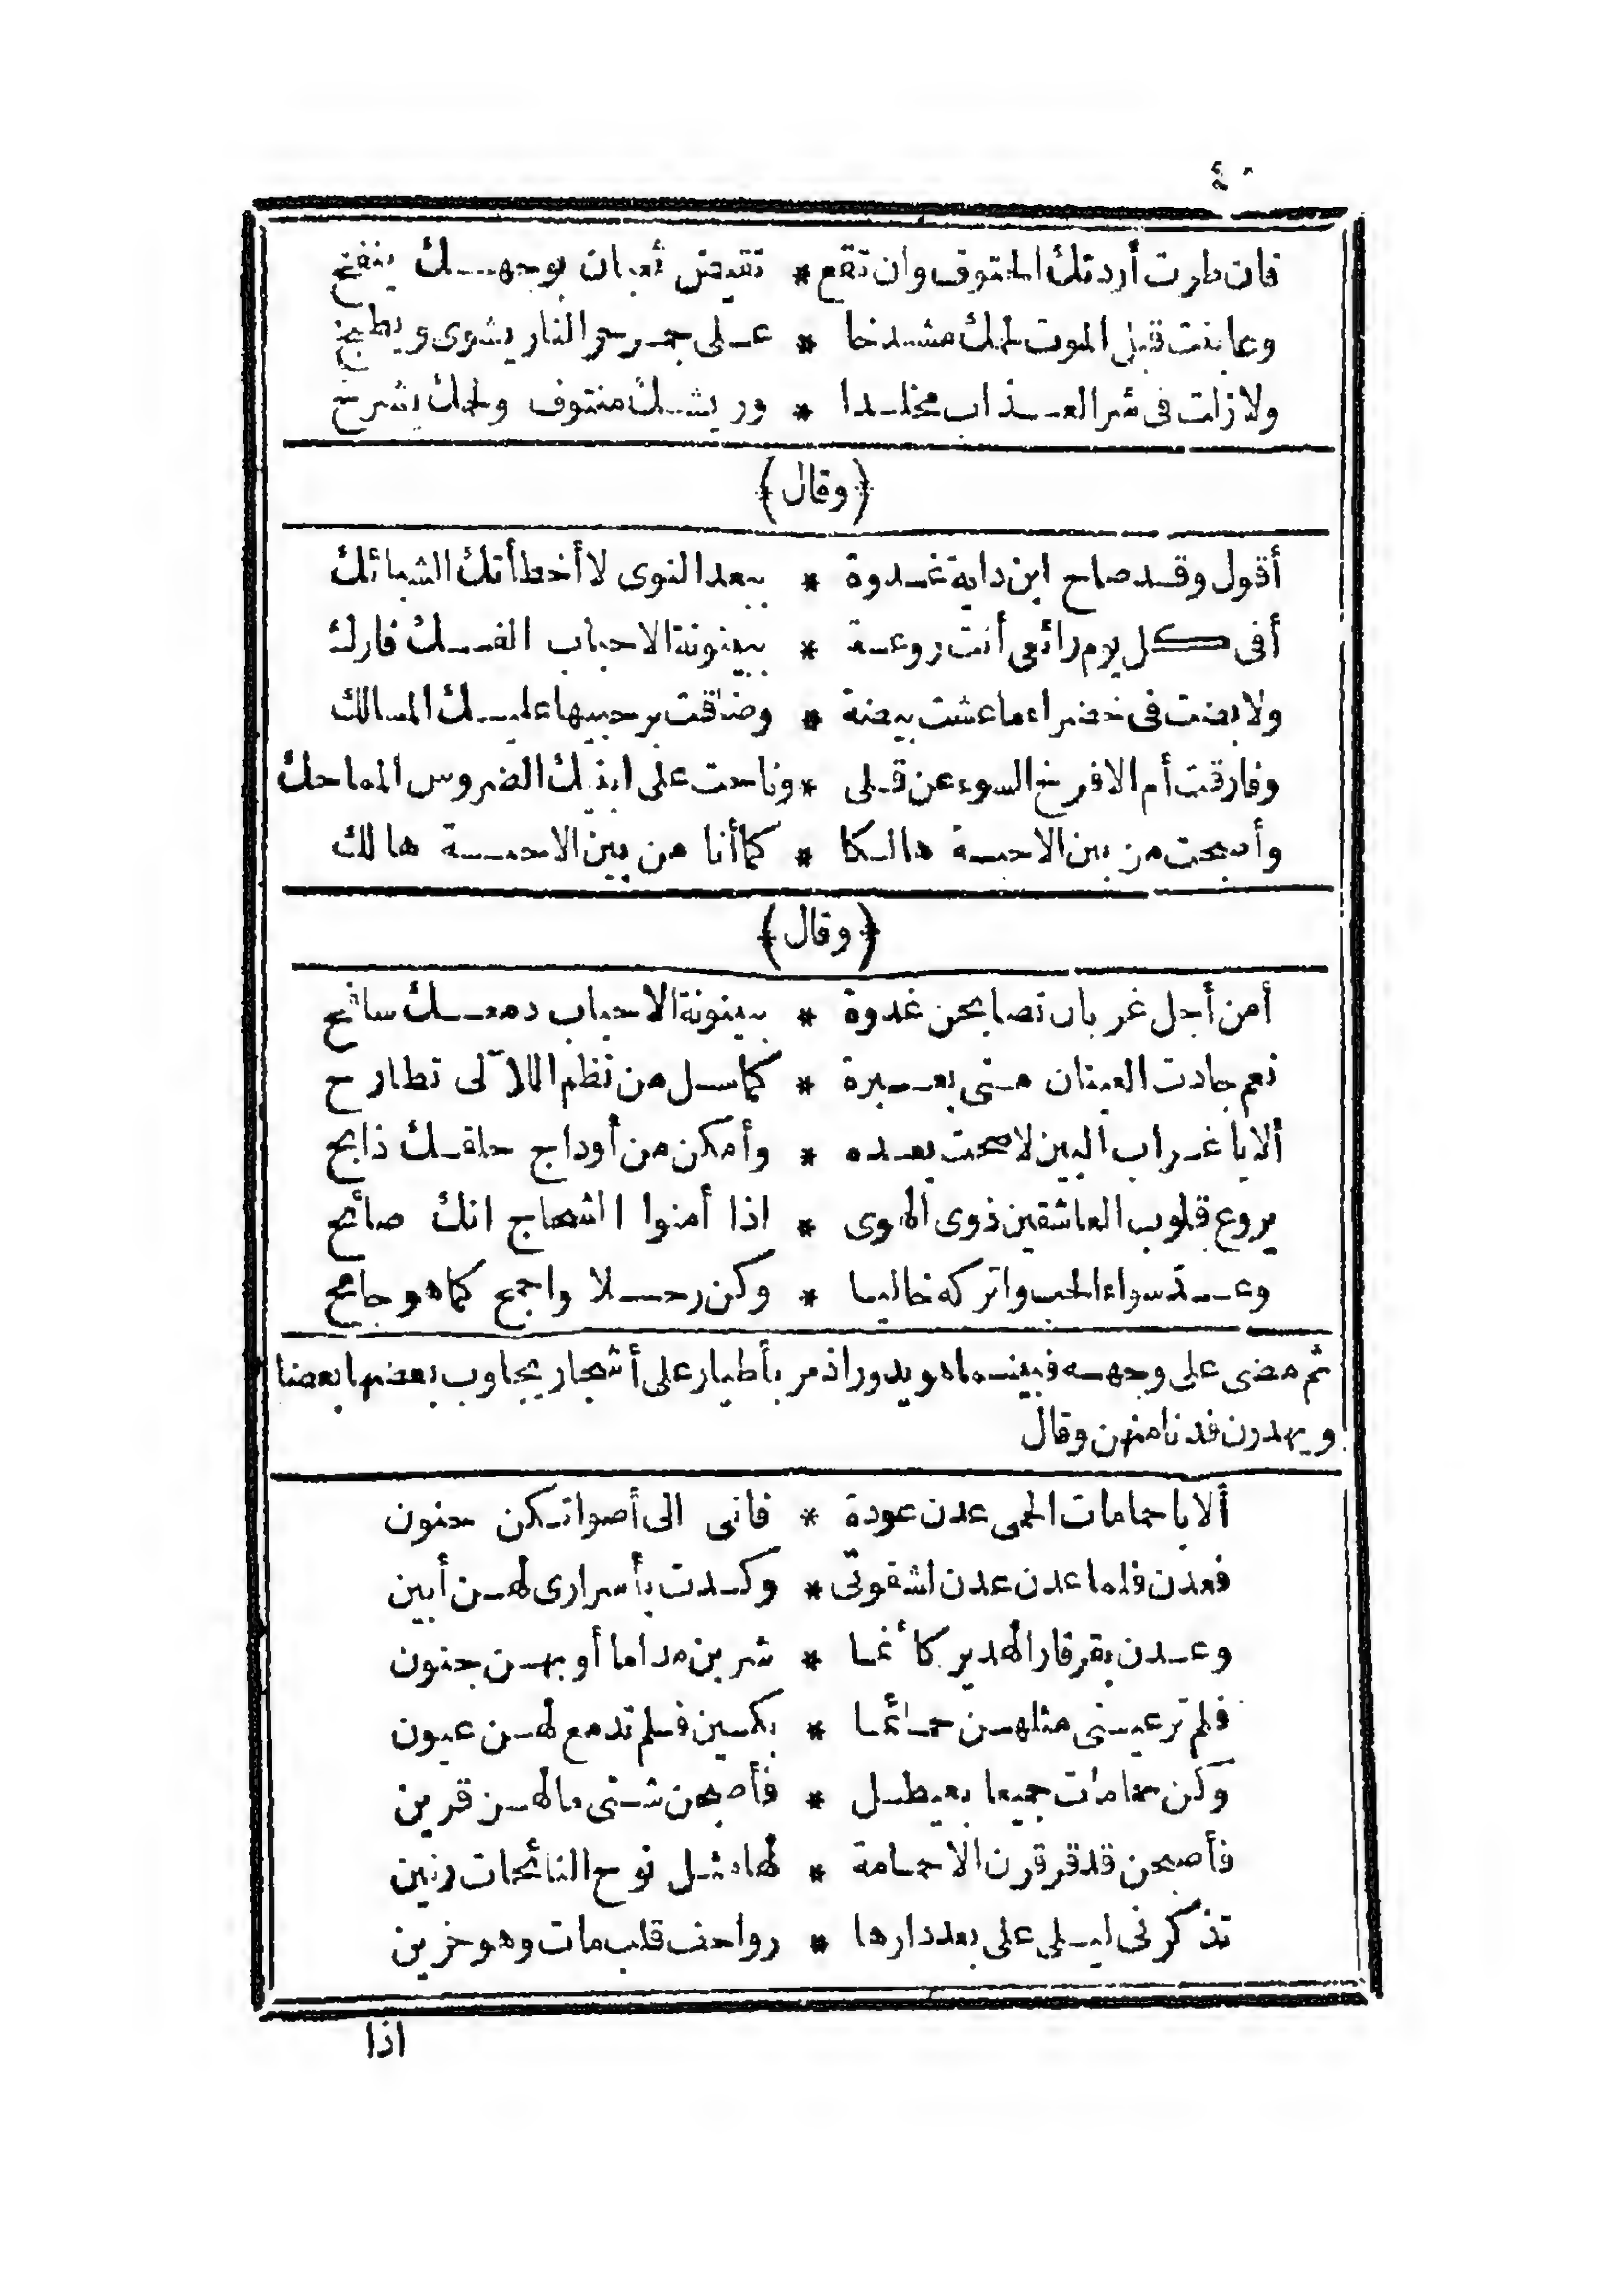 ٤٠
فان طرت أردتك الحتوف وان تقع * تقيض ثعبان بوجهك ينفخ
وعاينت قبل الموت لحمك مشدخا * على جمر حر النار يشوى ويطبخ
ولا زلت فى شر العذاب مخلدا * وريشك منتوف ولحمك يشرخ
﴿وقال﴾
أقول وقد صاح ابن داية غدوة * ببعد النوى لا أخطأتك الشبائك
أفى كل يوم رائعى أنت روعة * ببينونة الاحباب الفك فارك
ولا بضت فى خضراء ما عشت بيضة * وضاقت برحبيها عليك المسالك
وفارقت أم الافرخ السوء عن قلى * وناحت على ابنيك الضروس المماحك
وأصبحت من بين الاحبة هالكا * كما أنا من بين الاحبة هالك
﴿وقال﴾
أمن أجل غربان تصايحن غدوة * ببينونة الاحباب دمعك سافح
نعم جادت العينان منى بعبرة * كما سل من نظم اللآلى تطارح
ألا يا غراب البين لا صحت بعده * وأمكن من أوداج حلقك ذابح
يروع قلوب العاشقين ذوى الهوى * اذا أمنوا الشحاج انك صائح
وعد سواء الحب واتركه خاليا * وكن رجلا واجمح كما هو جامح
ثم مضى على وجهه فبينما هو يدور اذ مر بأطيار على أشجار يجاوب بعضها بعضا
ويهدرن فدنا منهن وقال
ألا يا حمامات الحمى عدن عودة * فانى الى أصواتكن حنون
فعدن فلما عدن عدن لشقوتى * وكدت بأسرارى لهن أبين
وعدن بقرقار الهدير كأنما * شربن مداما أو بهن جنون
فلم تر عينى مثلهن حمائما * بكين فلم تدمع لهن عيون
وكن حمامات جميعا بعيطل * فأصبحن شتى ما لهن قرين
فأصبحن قد قرقرن الا حمامة * لها مثل نوح النائحات رنين
تذكرنى ليلى على بعد دارها * رواجف قلب مات وهو حزين
اذا